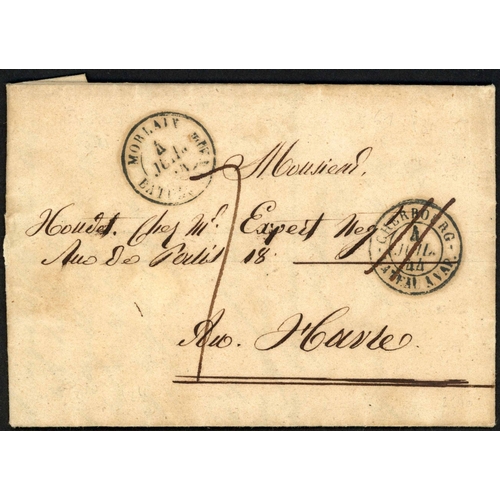 MORLAIX
4
JUIL.
BATEAU
Monsieur,
Houdet. Chez Mr. Expert Neg
Rue De 18.
Au Havre
CHERBOURG
4
JUIL.
44
BATEAU A VAP.